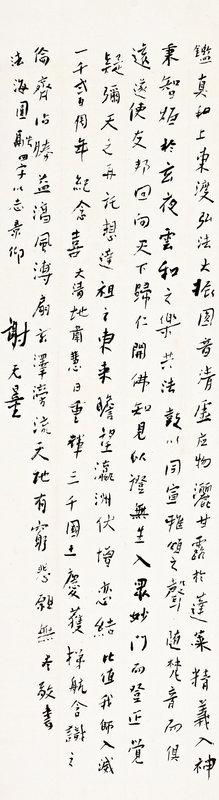 鑑真和上東渡弘法大振圓音清虛应物灑甘露於蓬萊精義入神
秉智炬於玄夜雲和之樂共法鼓以同宣雅頌之聲隨梵音而俱
遠遂使友邦回向天下歸仁開佛知見以證無生入眾妙門而登正覺
疑彌天之再託想達祖之東來瞻望瀛洲伏增忝結比值我師入滅
一千弍百周年紀念喜大清地肅慧日重輝三千國土慶獲梯航含識之
倫齊沾勝益鴻風溥扇玄澤滂流天地有窮悲願無盡敬書
法海圓融四字以志景仰
謝无量